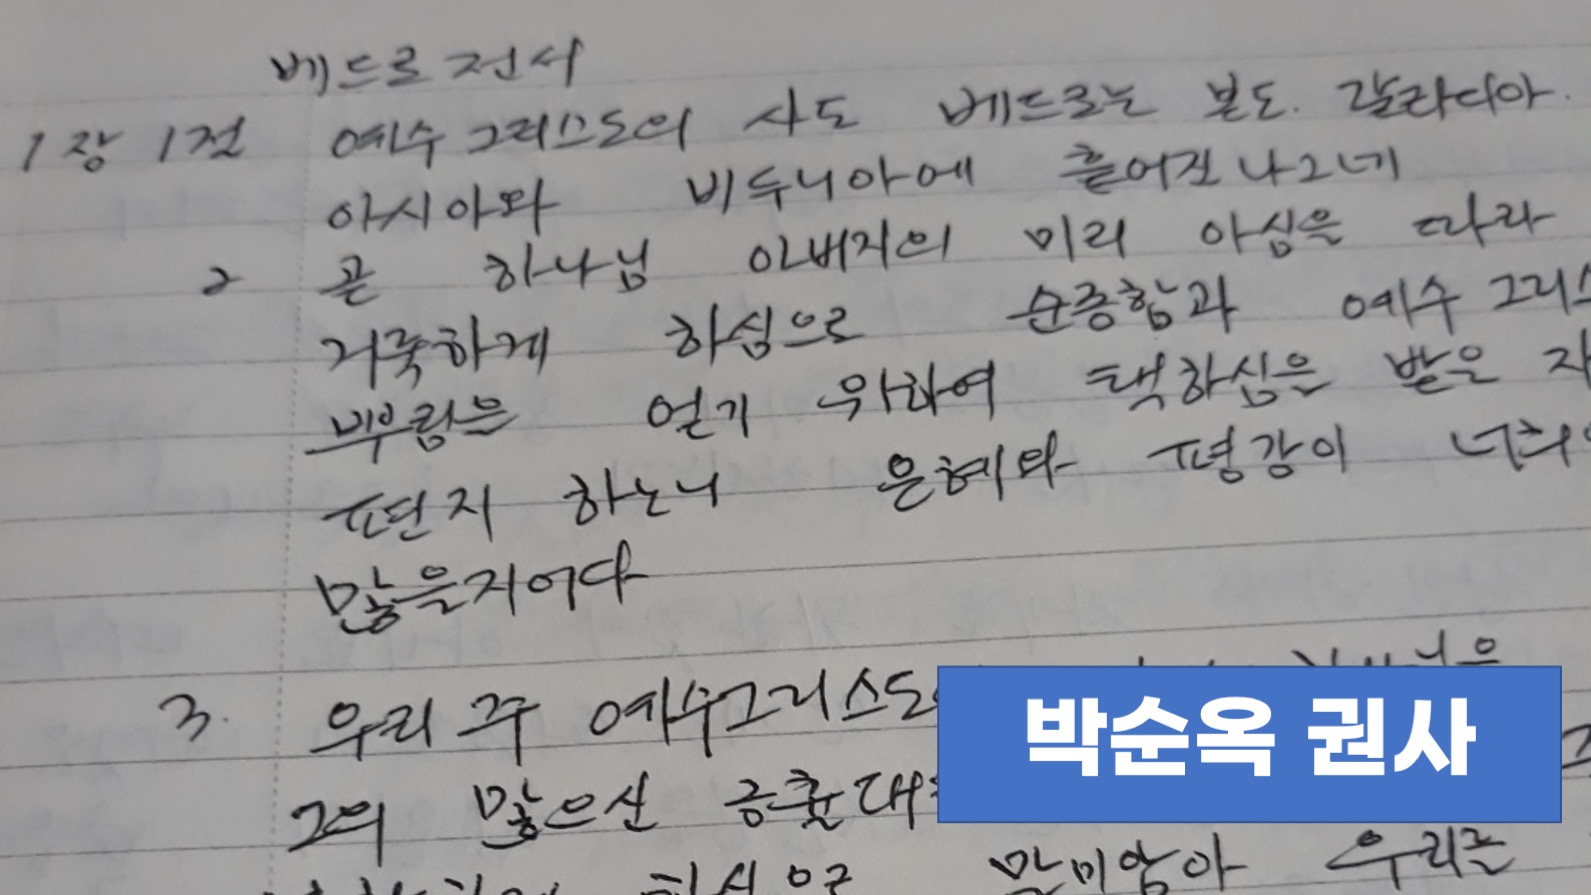 베드로전서
1장 1절 예수그리스도의 사도 베드로는 본도. 갈라디아.
아시아와 비두니아에 흩어진 나그네
2 곧 하나님 아버지의 미리 아심을 따라
거룩하게 하심으로 순종함과 예수 그리스
뿌림은 얻기 위하여 택하심은 받은 자
편지 하노니 은혜와 평강이 너희
많을지어다
3. 우리 주 예수그리스도
그의 많으신 긍휼대
박순옥 권사
말미암아 우리를